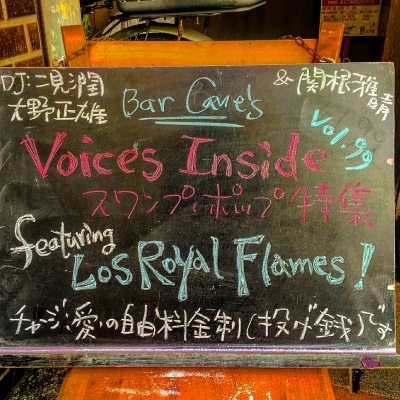 DJ:二見潤
大野正雄
& 関根雅晴
Bar Cane's
Vol.99
Voices Inside
スワンプ・ポップ特集
featuring
Los Royal Flames!
チャージ:愛の自由料金制(投げ銭)です